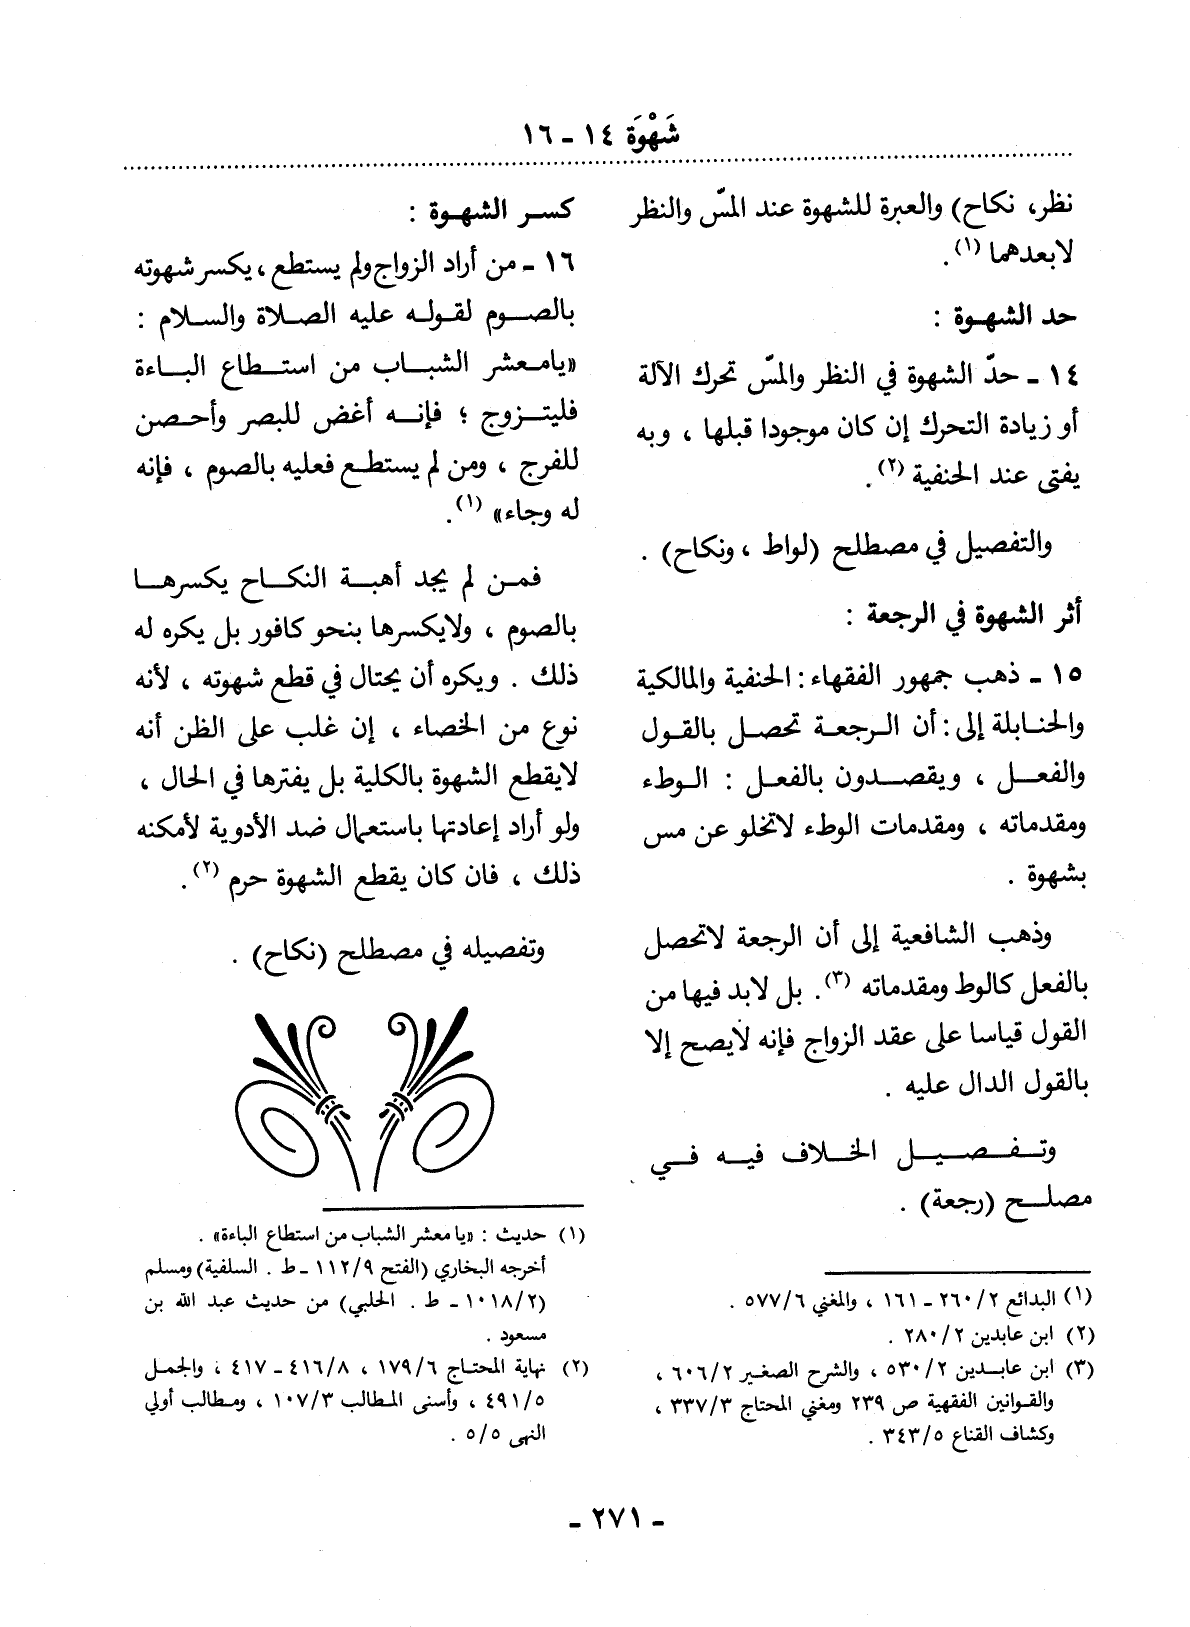 شَهْوَة ١٤ - ١٦
نظر، نكاح) والعبرة للشهوة عند المسّ والنظر
لابعدهما (١).
حد الشهوة :
١٤ - حدّ الشهوة في النظر والمسّ تحرك الآلة
أو زيادة التحرك إن كان موجودا قبلها ، وبه
يفتى عند الحنفية (٢).
والتفصيل في مصطلح (لواط ، ونكاح) .
أثر الشهوة في الرجعة :
١٥ - ذهب جمهور الفقهاء : الحنفية والمالكية
والحنابلة إلى : أن الرجعة تحصل بالقول
والفعل ، ويقصدون بالفعل : الوطء
ومقدماته ، ومقدمات الوطء لاتخلو عن مس
بشهوة .
وذهب الشافعية إلى أن الرجعة لاتحصل
بالفعل كالوط ومقدماته (٣). بل لابد فيها من
القول قياسا على عقد الزواج فإنه لايصح إلا
بالقول الدال عليه .
وتفصيل الخلاف فيه في
مصلح (رجعة) .
(١) البدائع ٢/ ٢٦٠ - ١٦١ ، والمغني ٦/ ٥٧٧ .
(٢) ابن عابدين ٢/ ٢٨٠ .
(٣) ابن عابدين ٢/ ٥٣٠ ، والشرح الصغير ٢/ ٦٠٦ ،
والقوانين الفقهية ص ٢٣٩ ومغني المحتاج ٣/ ٣٣٧ ،
وكشاف القناع ٥/ ٣٤٣ .
كسر الشهوة :
١٦ - من أراد الزواج ولم يستطع ، يكسر شهوته
بالصوم لقوله عليه الصلاة والسلام :
«يامعشر الشباب من استطاع الباءة
فليتزوج ؛ فإنه أغض للبصر وأحصن
للفرج ، ومن لم يستطع فعليه بالصوم ، فإنه
له وجاء» (١).
فمن لم يجد أهبة النكاح يكسرها
بالصوم ، ولايكسرها بنحو كافور بل يكره له
ذلك . ويكره أن يحتال في قطع شهوته ، لأنه
نوع من الخصاء ، إن غلب على الظن أنه
لايقطع الشهوة بالكلية بل يفترها في الحال ،
ولو أراد إعادتها باستعمال ضد الأدوية لأمكنه
ذلك ، فان كان يقطع الشهوة حرم (٢).
وتفصيله في مصطلح (نكاح) .
(١) حديث : «يا معشر الشباب من استطاع الباءة» .
أخرجه البخاري (الفتح ٩/ ١١٢ - ط . السلفية) ومسلم
(٢/ ١٠١٨ - ط . الحلبي) من حديث عبد الله بن
مسعود .
(٢) نهاية المحتاج ٦/ ١٧٩ ، ٨/ ٤١٦ - ٤١٧ ، والجمل
٥/ ٤٩١ ، وأسنى المطالب ٣/ ١٠٧ ، ومطالب أولي
النهى ٥/ ٥ .
- ٢٧١ -